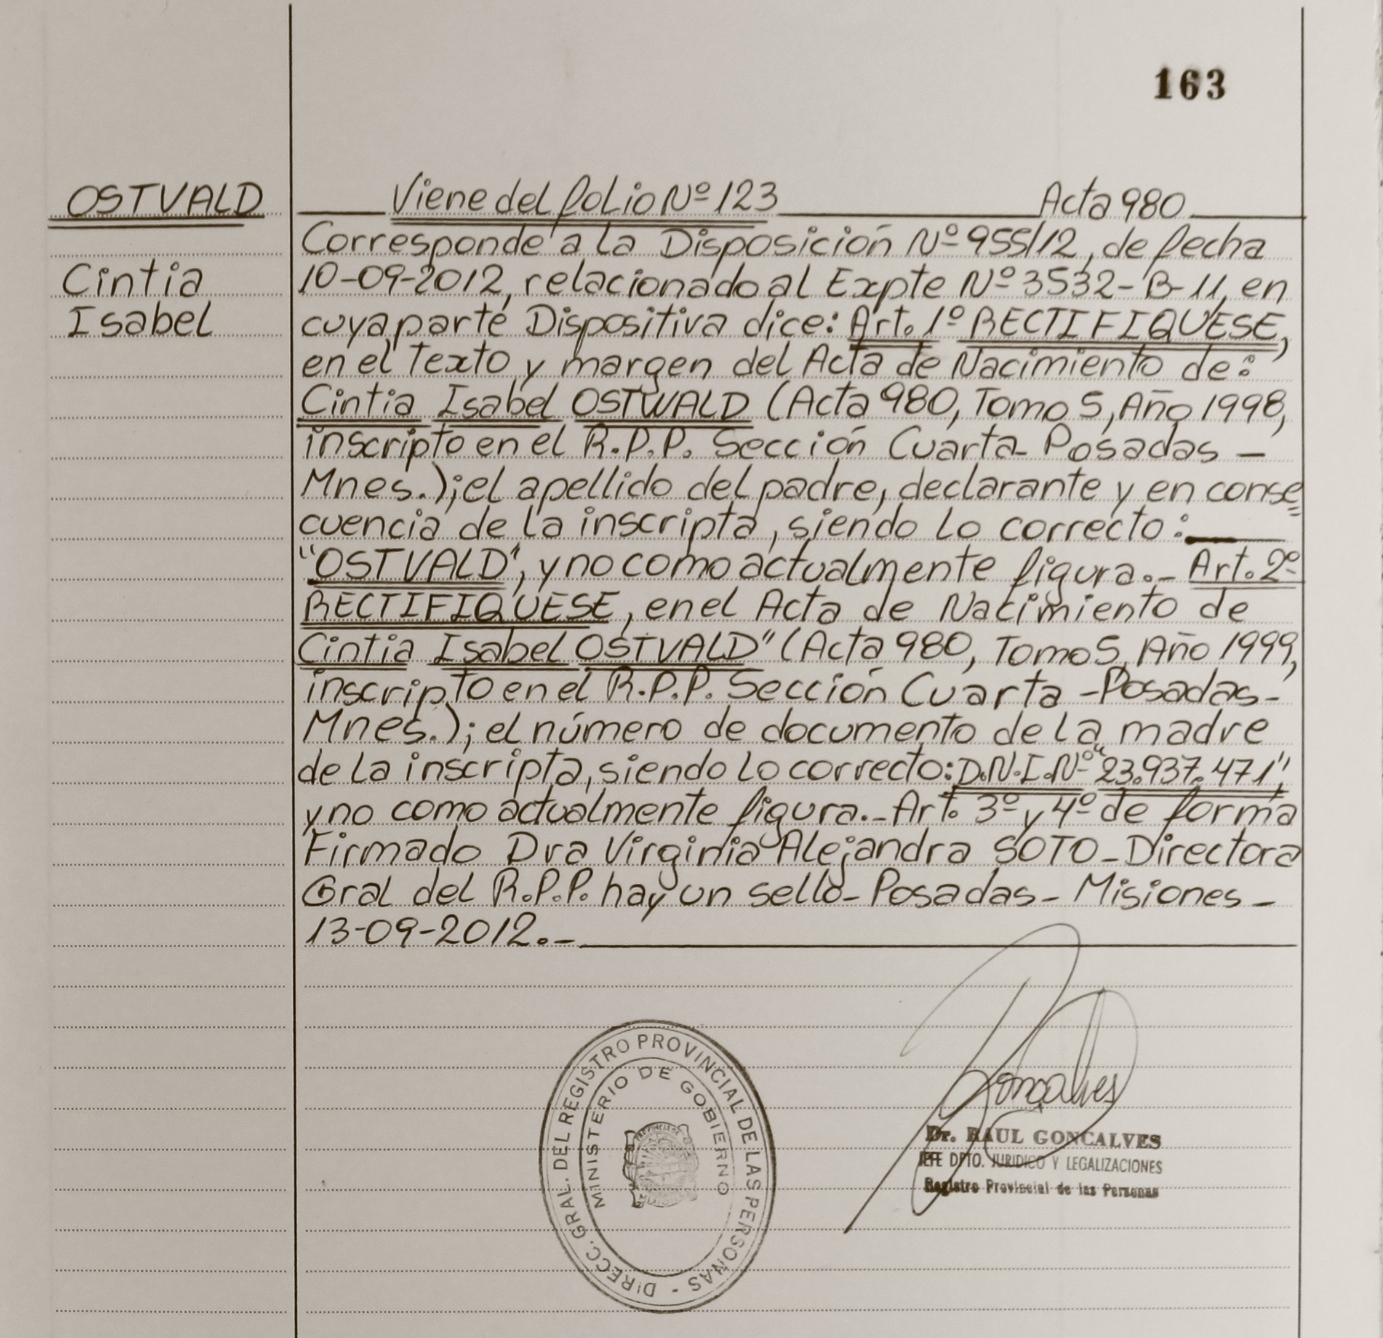 163
OSTVALD
Cintia
Isabel
Viene del folio Nº 123 Acta 980
Corresponde a la Disposición Nº 955/12, de fecha
10-09-2012, relacionado al Expte Nº 3532-B-11, en
cuya parte Dispositiva dice: Art. 1º RECTIFIQUESE,
en el Texto y margen del Acta de Nacimiento de:
Cintia Isabel OSTWALD (Acta 980, Tomo 5, Año 1998,
inscripto en el R.P.P. Sección Cuarta- Posadas -
Mnes.); el apellido del padre, declarante y en conse
cuencia de la inscripta, siendo lo correcto:
"OSTVALD", y no como actualmente figura.- Art. 2º
RECTIFIQUESE, en el Acta de Nacimiento de
Cintia Isabel OSTVALD" (Acta 980, Tomo 5, Año 1999,
inscripto en el R.P.P. Sección Cuarta -Posadas-
Mnes.); el número de documento de la madre
de la inscripta, siendo lo correcto: D.N.I. Nº "23.937.471",
y no como actualmente figura.- Art. 3º y 4º de forma
Firmado Dra Virginia Alejandra SOTO - Directora
Gral del R.P.P. hay un sello- Posadas- Misiones-
13-09-2012.-
DIRECC. GRAL. DEL REGISTRO PROVINCIAL DE LAS PERSONAS -
MINISTERIO DE GOBIERNO
Gonçalves
Dr. RAUL GONCALVES
JEFE DPTO. JURIDICO Y LEGALIZACIONES
Registro Provincial de las Personas